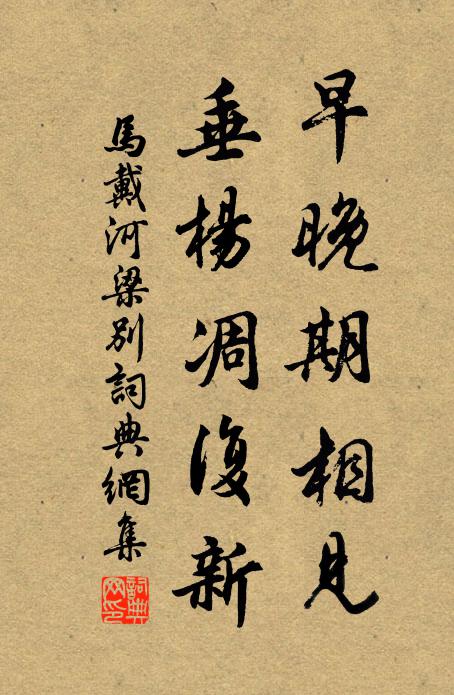 早晚期相見
垂楊凋復新
馬戴河梁別詞典網集
詞典網印